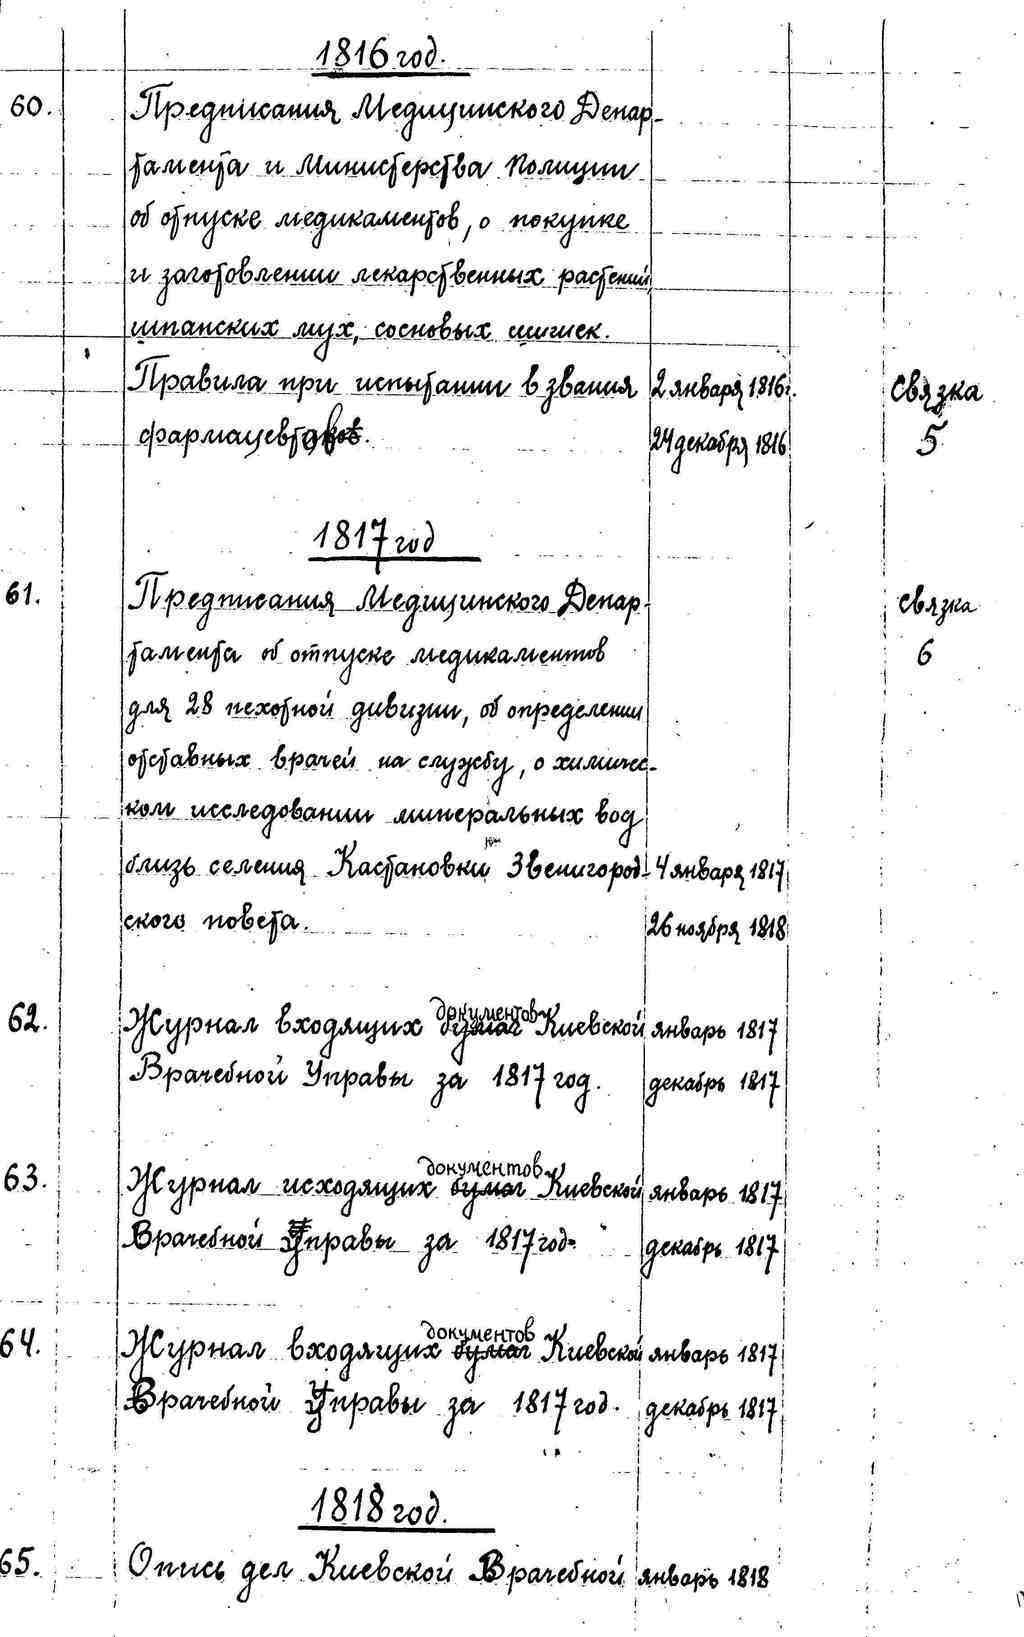 1816 год.
60. Предписания Медицинского Депар-
тамента и Министерства Полиции
об отпуске медикаментов, о покупке
и заготовлении лекарственных растений,
шпанских мух, сосновых шишек.
Правила при испытании в звания 2 января 1816г. Связка
фармацевтов. 24 декабря 1816 5
1817 год
61. Предписания Медицинского Депар- связка
тамента об отпуске медикаментов 6
для 28 пехотной дивизии, об определении
отставных врачей на службу, о химичес-
ком исследовании минеральных вод
близь селения Кастановки Звенигород- 4 января 1817
ского повета. 26 ноября 1818
62. Журнал входящих бумаг документов Киевской январь 1817
Врачебной Управы за 1817 год. декабрь 1817
63. Журнал исходящих бумаг документов Киевской январь 1817
Врачебной Управы за 1817 год. декабрь 1817
64. Журнал входящих бумаг документов Киевской январь 1817
Врачебной Управы за 1817 год. декабрь 1817
1818 год.
65. Опись дел Киевской Врачебной январь 1818